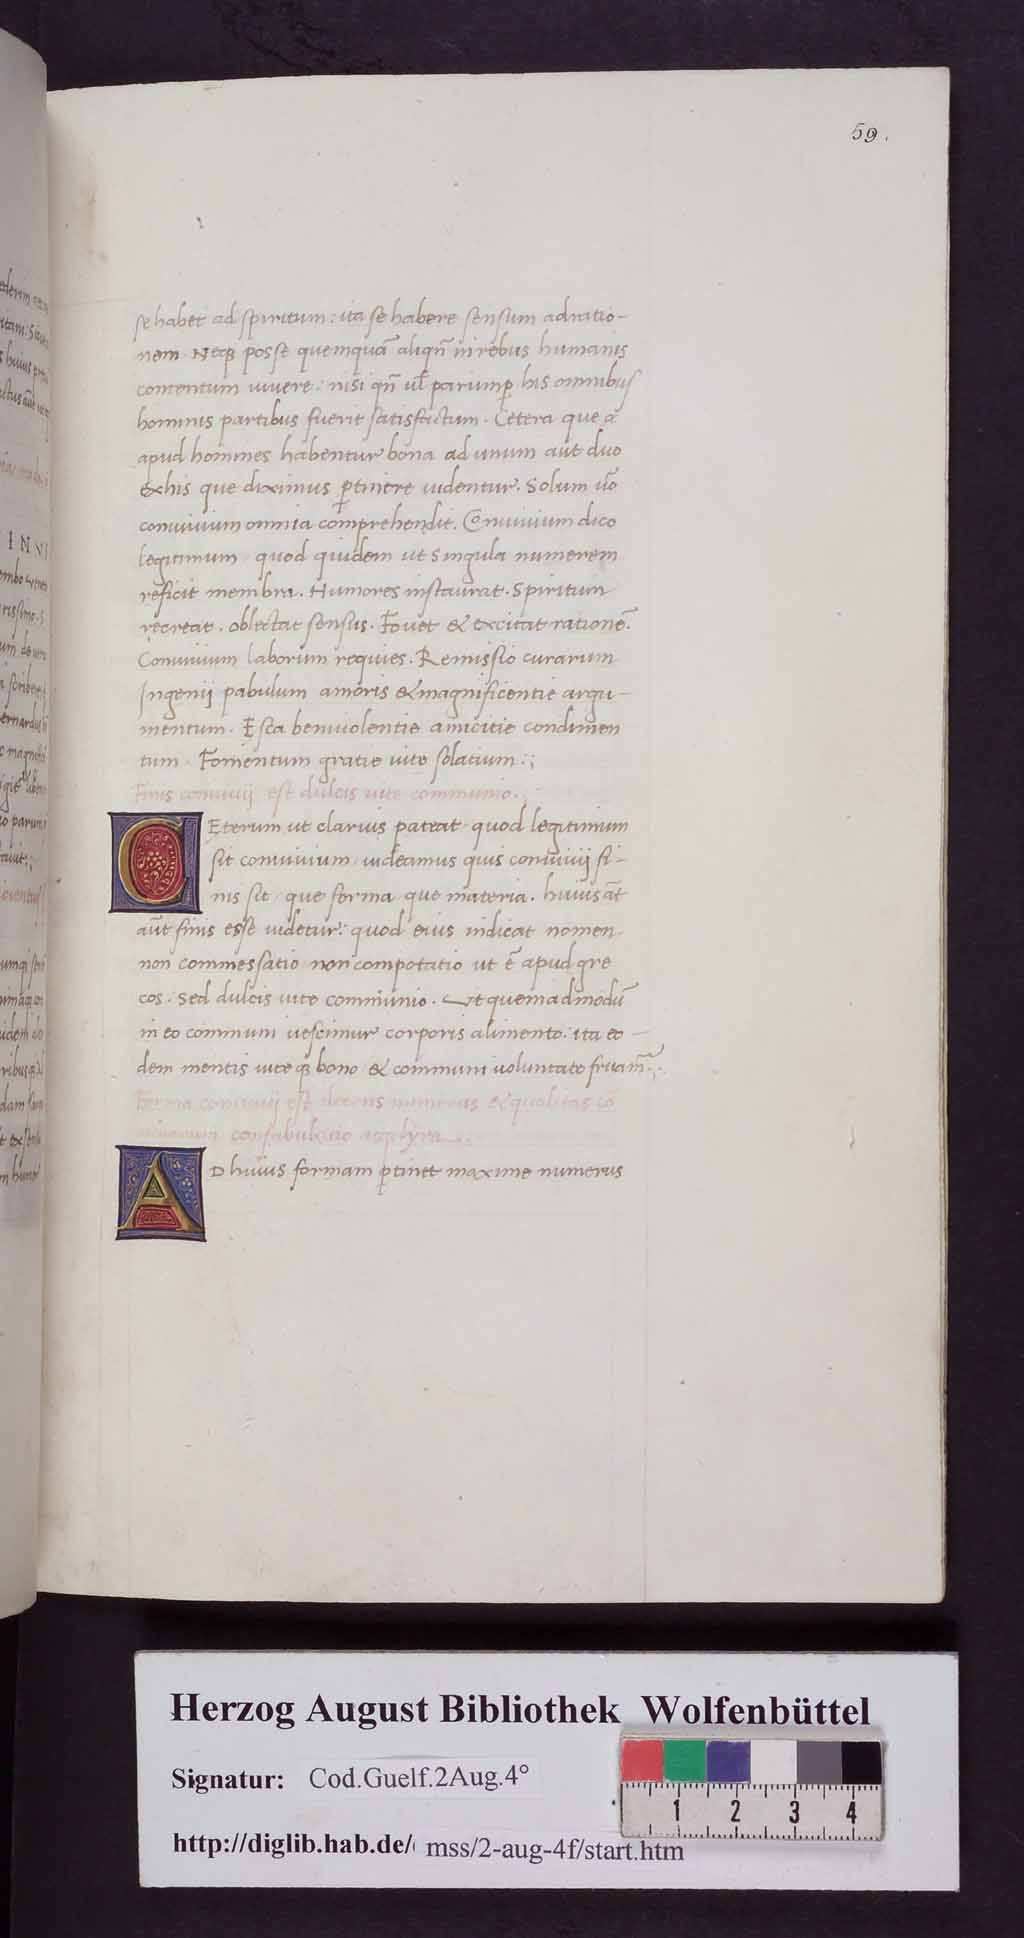 59.
se habet ad spiritum: ita se habere sensum ad ratio-
nem. Neqꝫ posse quemquā aliqñ in rebus humanis
contentum vivere: nisi qñ ul̄ parumꝑ his omnibus
hominis partibus fuerit satisfactum. Cetera que
apud homines habentur bona ad unum aut duo
ex his que diximus ꝑtinere videntur. Solum ūo
convivium omnia comprehendit. Convivium dico
legitimum quod quidem ut singula numerem
reficit membra. Humores instaurat. Spiritum
recreat. oblectat sensus. Fovet & excitat rationē.
Convivium laborum requies. Remissio curarum
Ingenij pabulum amoris & magnificentie argu-
mentum. Esca benivolentie amicitie condimen
tum. Fomentum gratie vite solatium:;
Finis convivij est dulcis vite communio.
CEterum ut clarius pateat quod legitimum
sit convivium videamus quis convivij fi-
nis sit que forma que materia. huius āt
aūt finis esse videtur: quod eius indicat nomen
non commessatio non compotatio ut ē apud gre
cos. Sed dulcis vite communio. Ut quemadmodū
in eo communi vescimur corporis alimento. ita eo-
dem mentis vite qꝫ bono & communi voluntate fruam̄:.
Forma convivij est decens numerus & qualitas cō
vivarum confabulatio
AD huius formam ꝑtinet maxime numerus
Herzog August Bibliothek Wolfenbüttel
Signatur: Cod.Guelf.2Aug.4°
http://diglib.hab.de/ mss/2-aug-4f/start.htm
1 2 3 4